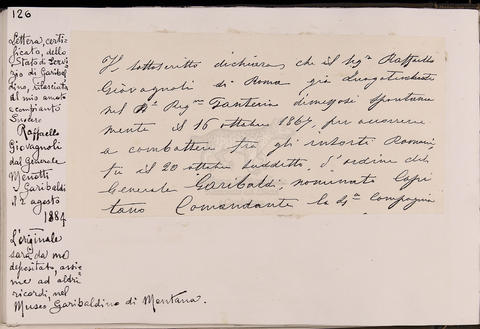 126
Lettera, certi-
ficato, dello
Stato di Servi-
zio di Garibal-
dino, rilasciata
al mio amato
e compianto
Suocero
Raffaello
Giovagnoli
dal Generale
Menotti
Garibaldi
il 2 agosto
1884
L'originale
sarà da me
depositato, assie-
me ad altri
ricordi, nel
Museo Garibaldino di Mentana.
Il sottoscritto dichiara, che il Sigr. Raffaello
Giovagnoli di Roma già Luogotenente
nel Regg.to Fanteria dimessosi spontanea
mente il 16 ottobre 1867, per accorrere
a combattere tra gli insorti Romani,
fu il 20 ottobre suddetto, d'ordine del
Generale Garibaldi, nominato Capi
tano Comandante la Compagnia